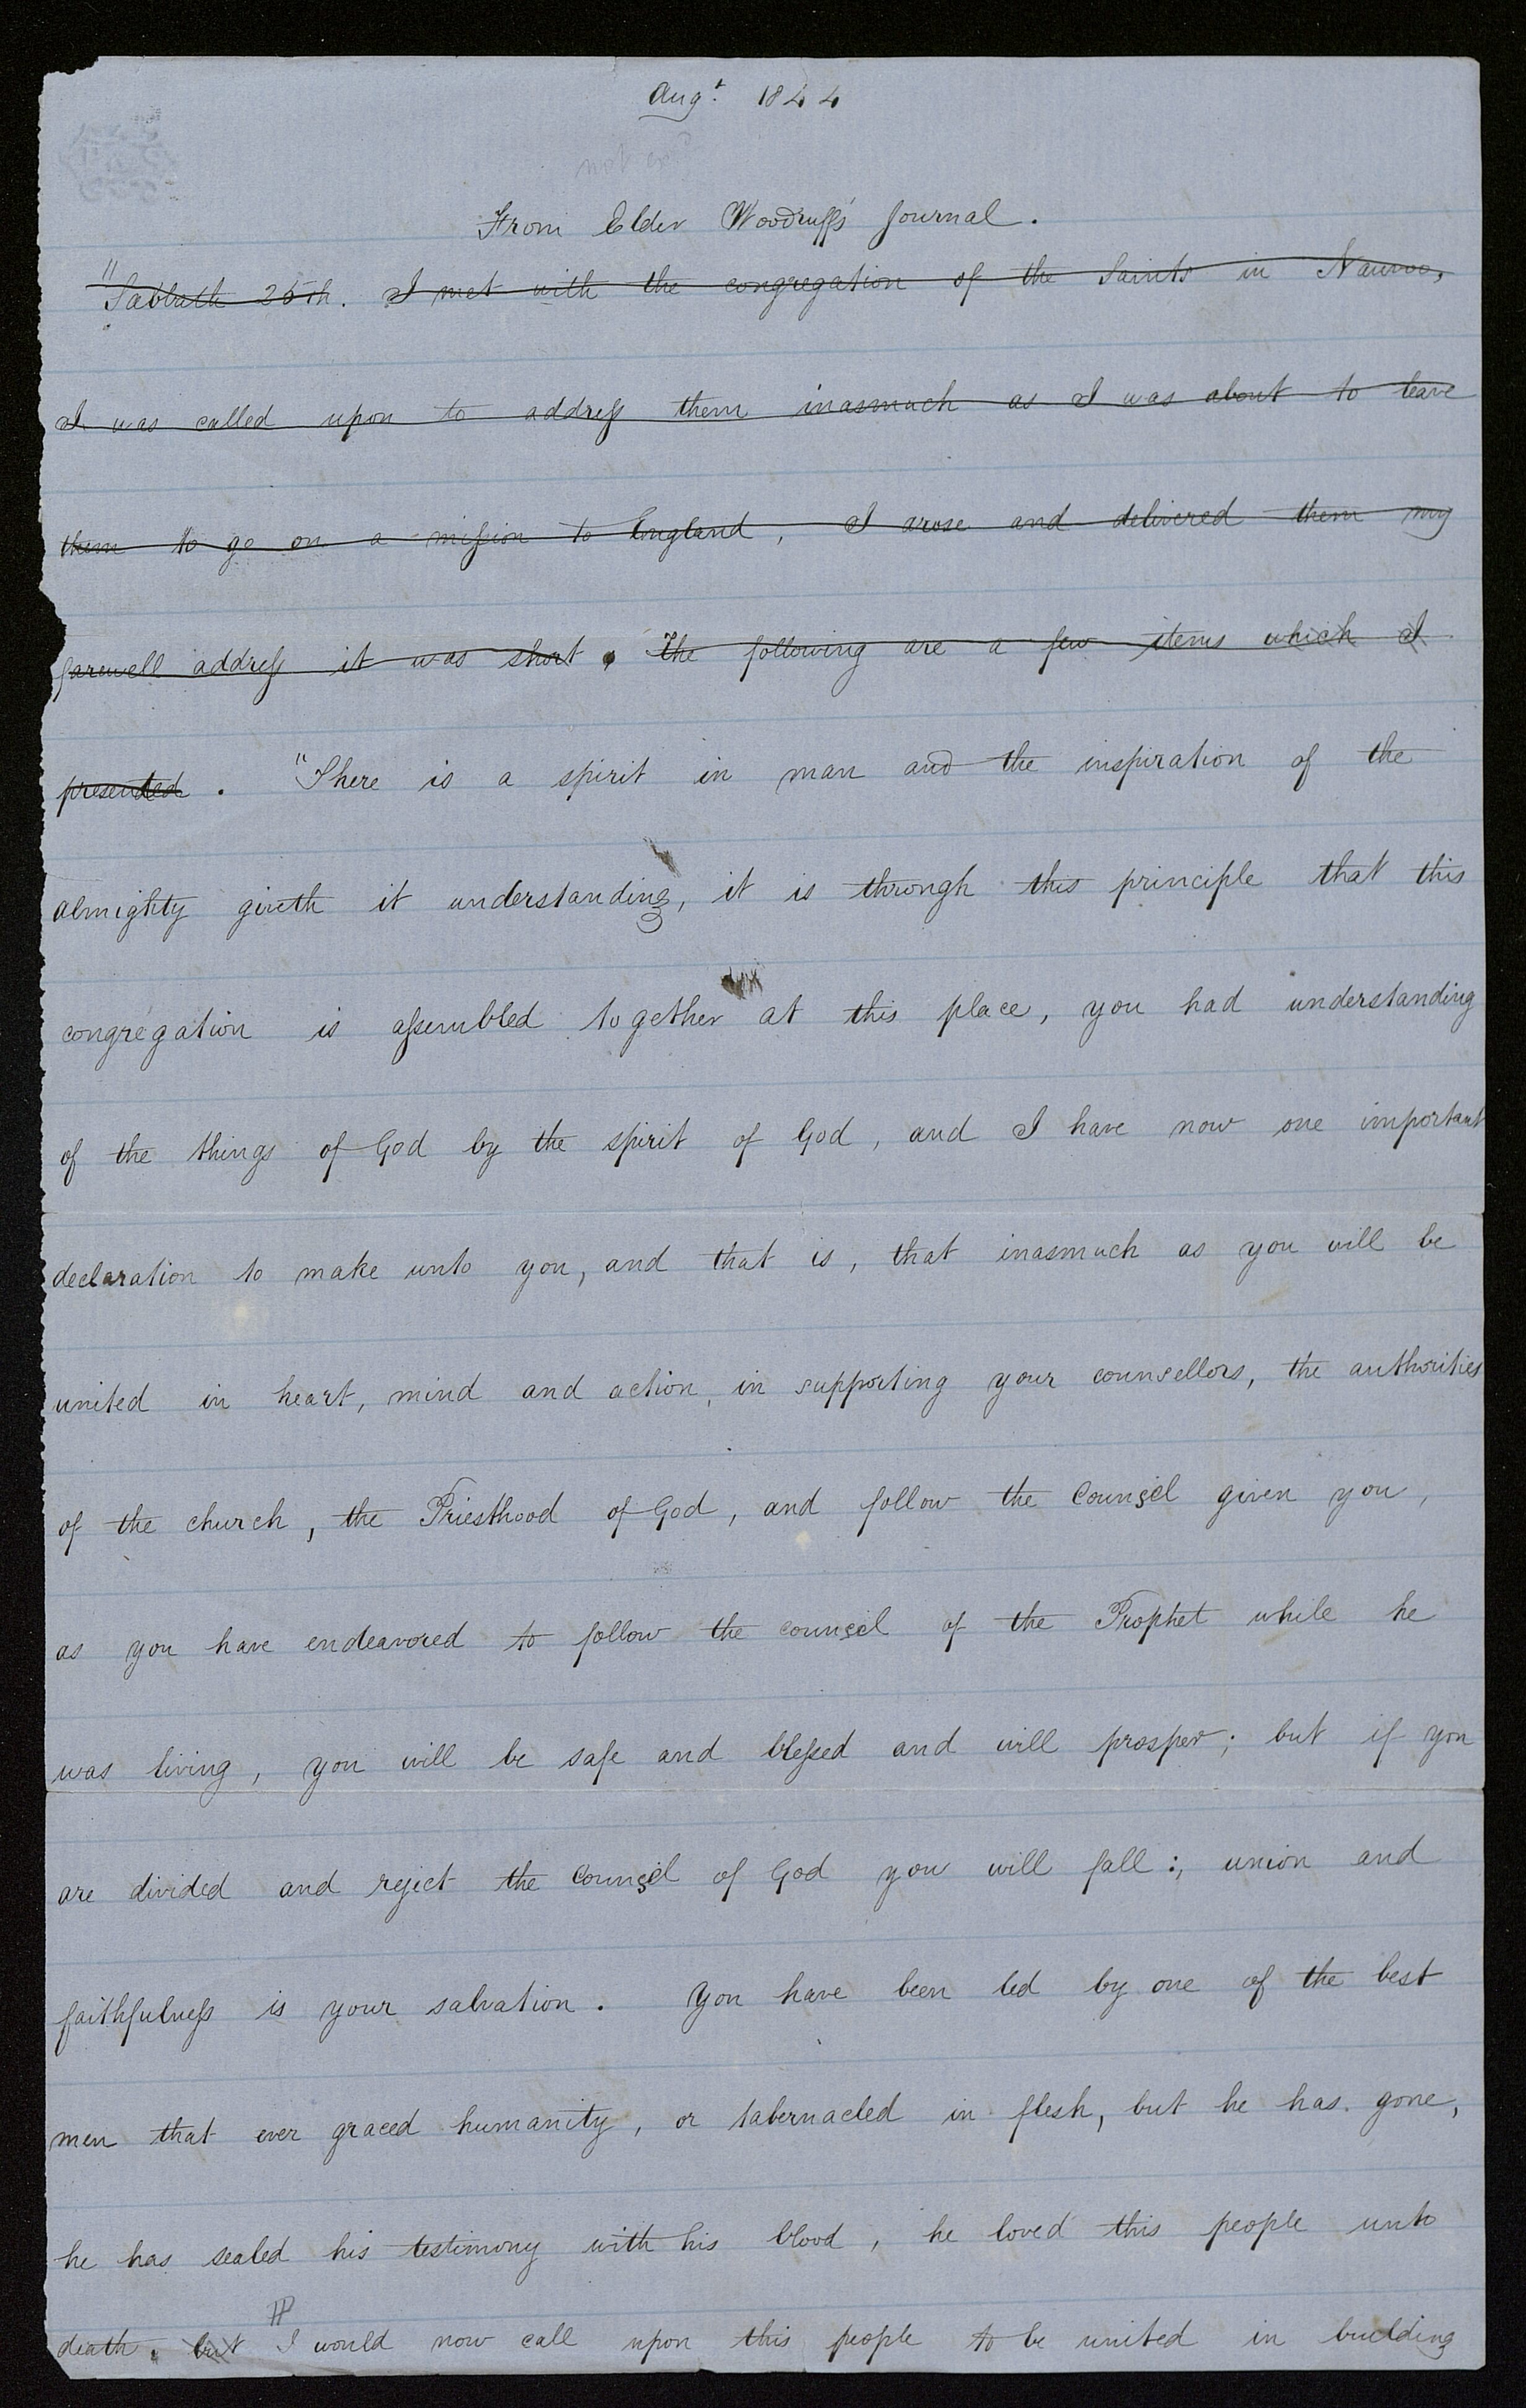 Augt. 1844
From Elder Woodruff's Journal.
"Sabbath 25th. I met with the congregation of the Saints in Nauvoo,
I was called upon to address them inasmuch as I was about to leave
them to go on a mission to England, I arose and delivered them my
farewell address it was short. The following are a few items which I
presented. "There is a spirit in man and the inspiration of the
almighty giveth it understanding, it is through this principle that this
congregation is assembled together at this place, you had understanding
of the things of God by the spirit of God, and I have now one important
declaration to make unto you, and that is, that inasmuch as you will be
united in heart, mind and action, in supporting your counsellors, the authorities
of the church, the Priesthood of God, and follow the counsel given you,
as you have endeavored to follow the counsel of the Prophet while he
was living, you will be safe and blessed and will prosper; but if you
are divided and reject the counsel of God you will fall:, union and
faithfulness is your salvation. You have been led by one of the best
men that ever graced humanity, or tabernacled in flesh, but he has gone,
he has sealed his testimony with his blood, he loved this people unto
death. but I would now call upon this people to be united in building